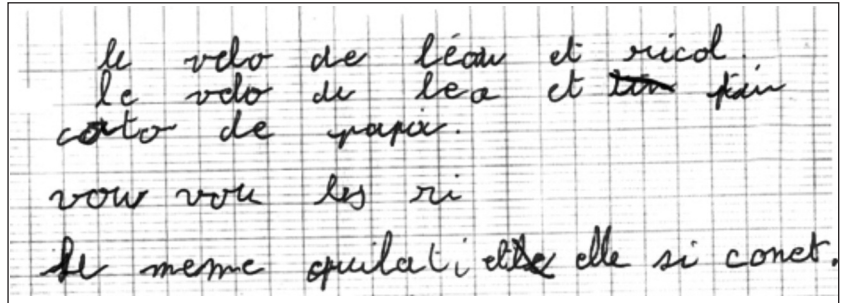 le velo de léau et ricol.
le velo de lea et fain
coto de papa.
vou vou les ri
le meme quilati elle si conet.